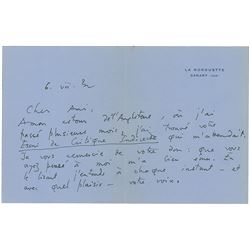 LA GORGUETTE
SANARY (VAR)
6. VII. 32
Cher Ami,
A mon retour d'Angleterre, où j'ai
passé plusieurs mois, j'ai trouvé votre
Essai de Critique Indirecte qui m'attendait.
Je vous remercie de votre don: que vous
ayez pensé à moi m'a bien ému. En
le lisant j'entends à chaque instant - et
avec quel plaisir - votre voix.